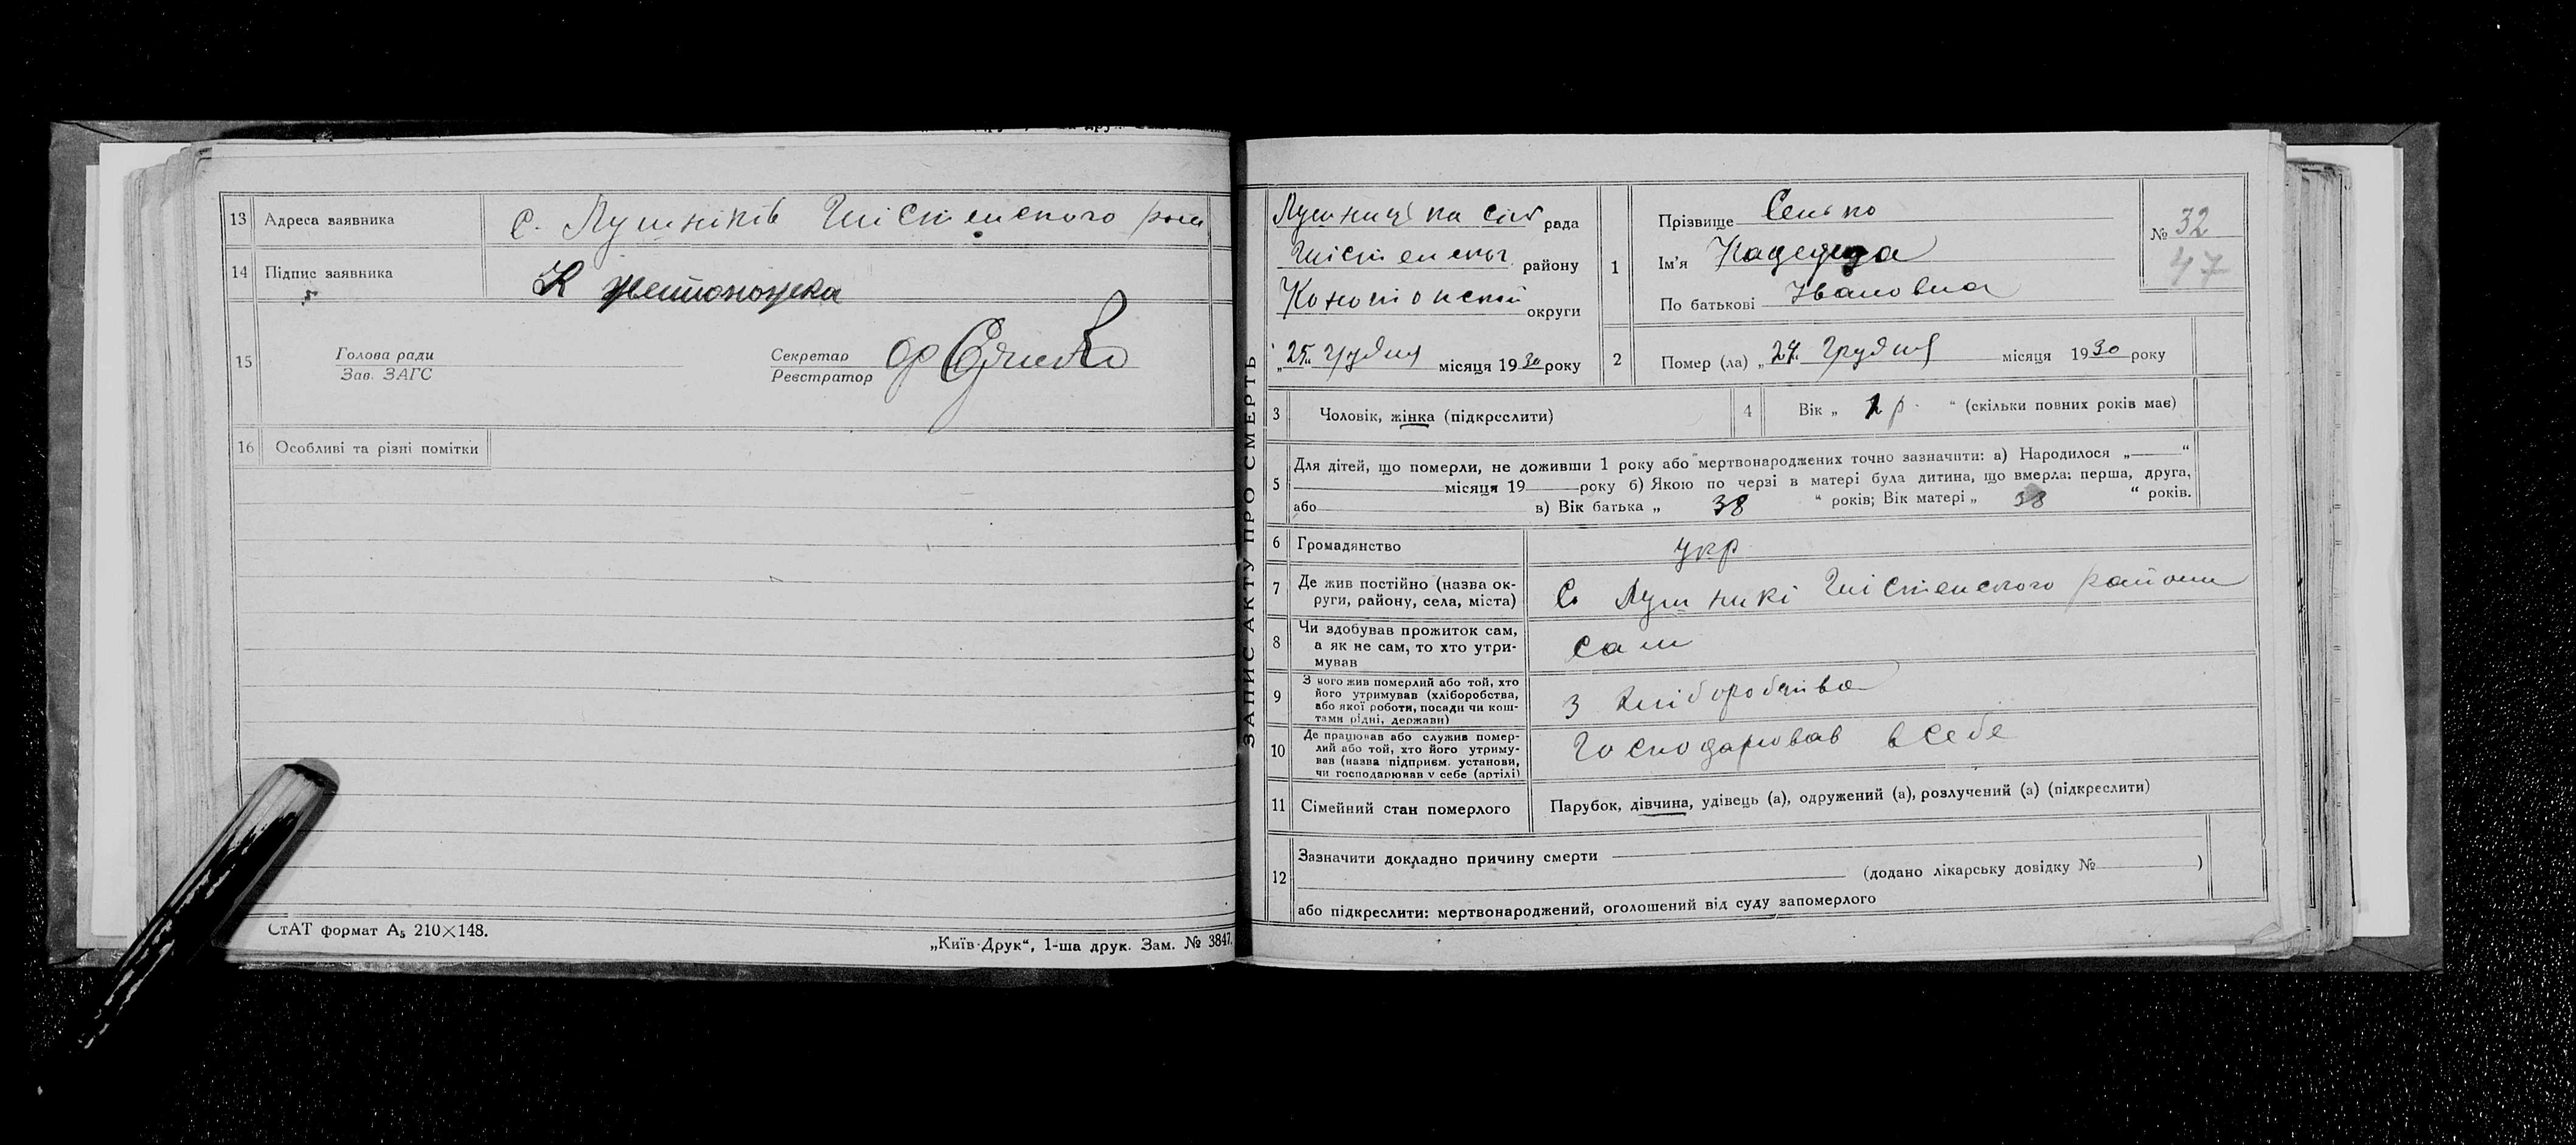 13 Адреса заявника с. Лушніків Шістенского рон
14 Підпис заявника К Жетоножка
15 Голова ради
Зав. ЗАГС
Секретар
Реєстратор
16 Особливі та різні помітки
СтАТ формат А₅ 210×148.
„Київ-Друк“, 1-ша друк. Зам. № 3847.
ЗАПИС АКТУ ПРО СМЕРТЬ
рада
району
Конотопской округи
„25„ грудня місяця 1930 року
1 Прізвище Сенько
Ім’я Надежда
По батькові Івановна
№ 32
47
2 Помер (ла) „24„ Грудня місяця 1930 року
3 Чоловік, жінка (підкреслити)
4 Вік „ 1 р. “ (скільки повних років має)
5 Для дітей, що померли, не доживши 1 року або мертвонароджених точно зазначити: а) Народилося „ “
місяця 19 року б) Якою по черзі в матері була дитина, що вмерла: перша, друга,
або в) Вік батька „ 38 “ років; Вік матері „ 38 “ років.
6 Громадянство укр
7 Де жив постійно (назва ок-
руги, району, села, міста) С. Лушникі Шістенского району
8 Чи здобував прожиток сам,
а як не сам, то хто утри-
мував сам
9 З чого жив померлий або той, хто
його утримував (хліборобства,
або якої роботи, посади чи кош-
тами рідні, держави) З хліборобства
10 Де працював або служив помер-
лий або той, хто його утриму-
вав (назва підприєм. установи,
чи господарював у себе (артілі) Господарював в себе
11 Сімейний стан померлого Парубок, дівчина, удівець (а), одружений (а), розлучений (а) (підкреслити)
12 Зазначити докладно причину смерти
(додано лікарську довідку № )
або підкреслити: мертвонароджений, оголошений від суду запомерлого